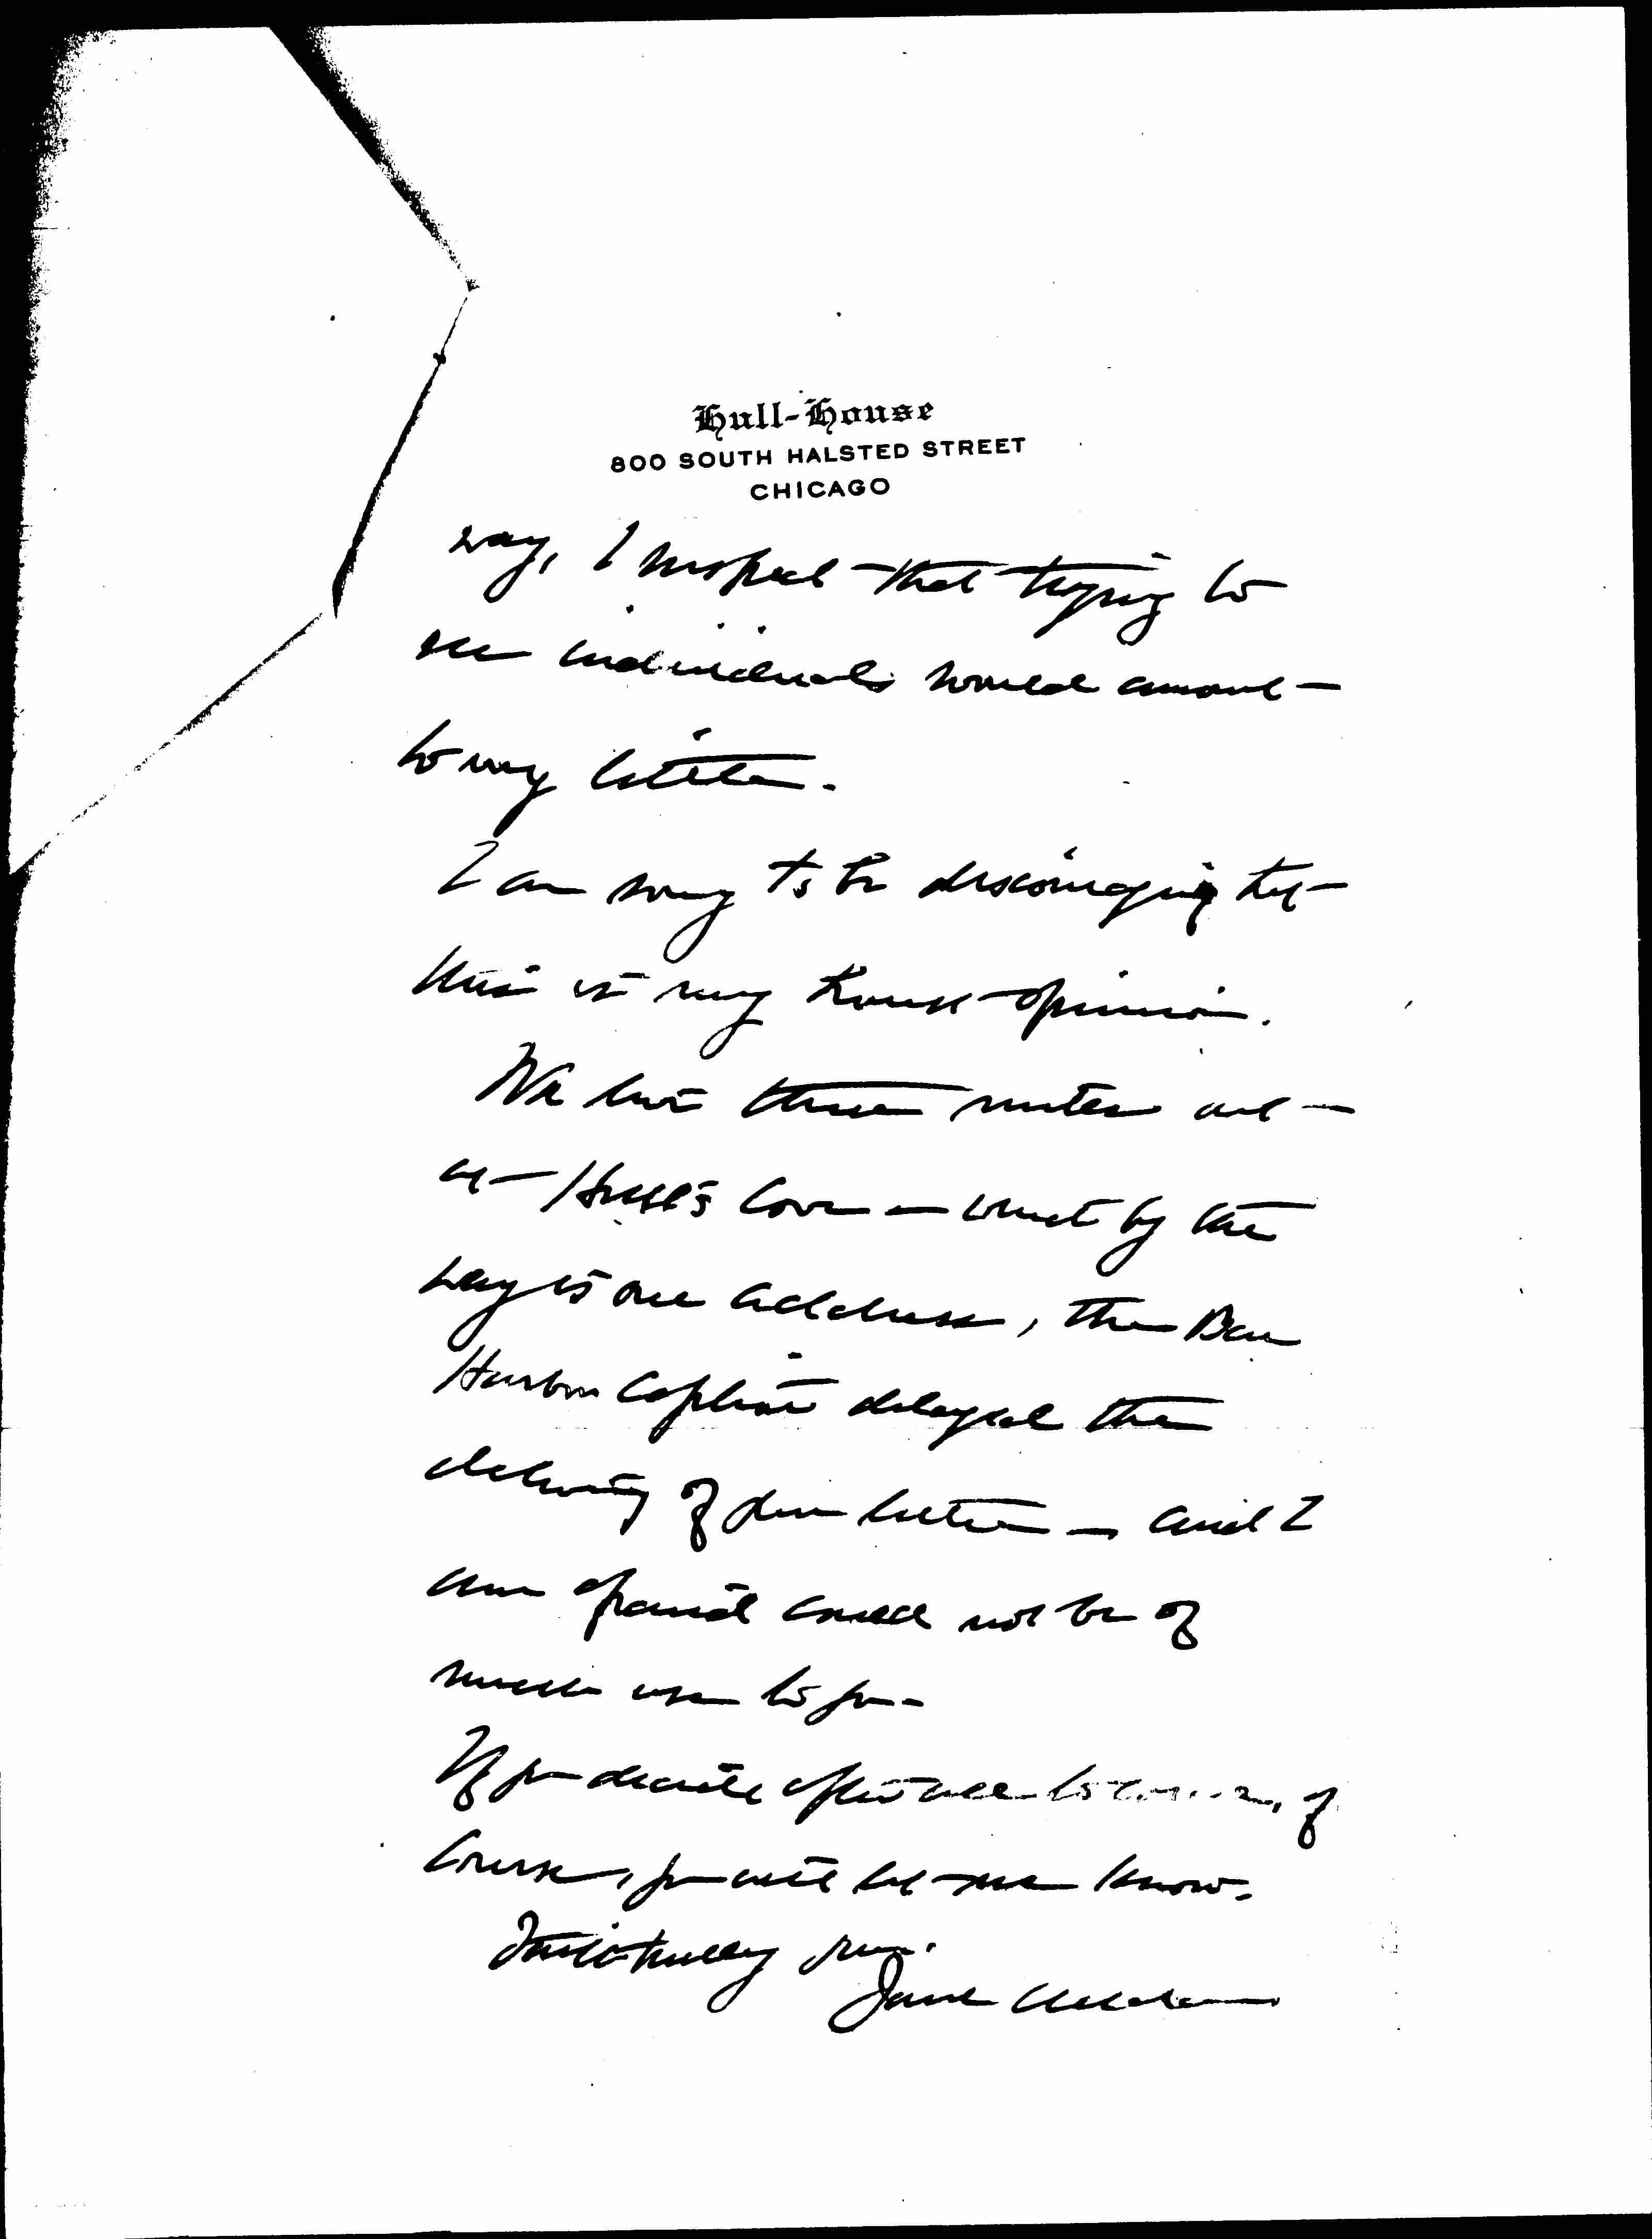 Hull-House
800 SOUTH HALSTED STREET
CHICAGO
way, I that trying to
see individuals would amount
to very little.
I am sorry to be discouraging but
this is my honest opinion.
We live three miles out
at Hull's Cove — which by the
way is our address, the Bar
Harbor delayed the
delivery of your letter — and I
am afraid could not be of
much use to you.
If you decide after all to come, of
course, you will let me know.
Faithfully yours.
Jane Addams